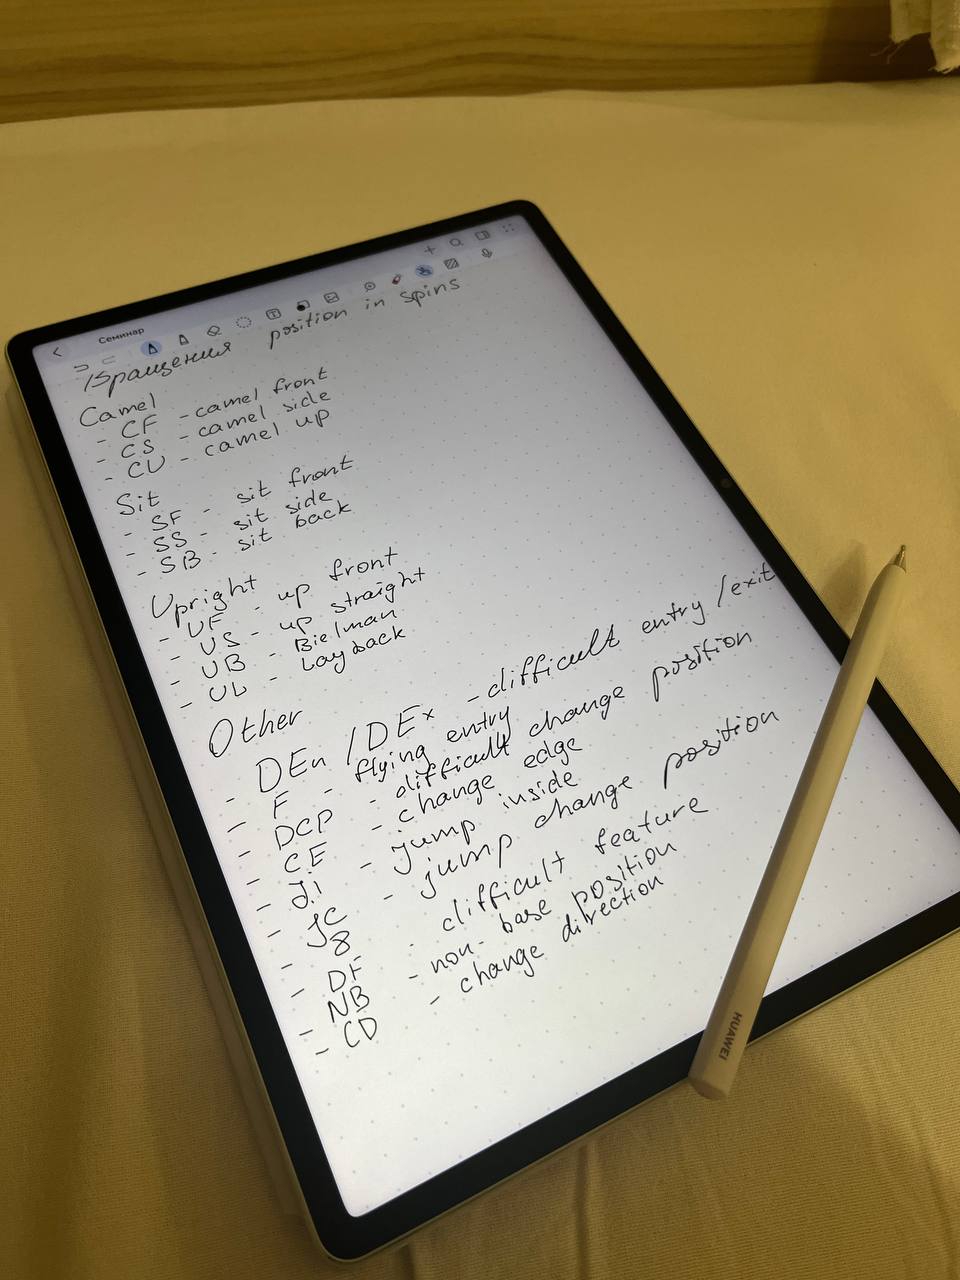 Семинар
Вращения position in spins
Camel
- CF - camel front
- CS - camel side
- CU - camel up
Sit
- SF - sit front
- SS - sit side
- SB - sit back
Upright
- UF - up front
- US - up straight
- UB - Bielman
- UL - Layback
Other
- DEn / DEx - difficult entry / exit
- F - flying entry
- DCP - difficult change position
- CE - change edge
- Ji - jump inside
- JC - jump change position
- 8
- DF - difficult feature
- NB - non-base position
- CD - change direction
HUAWEI